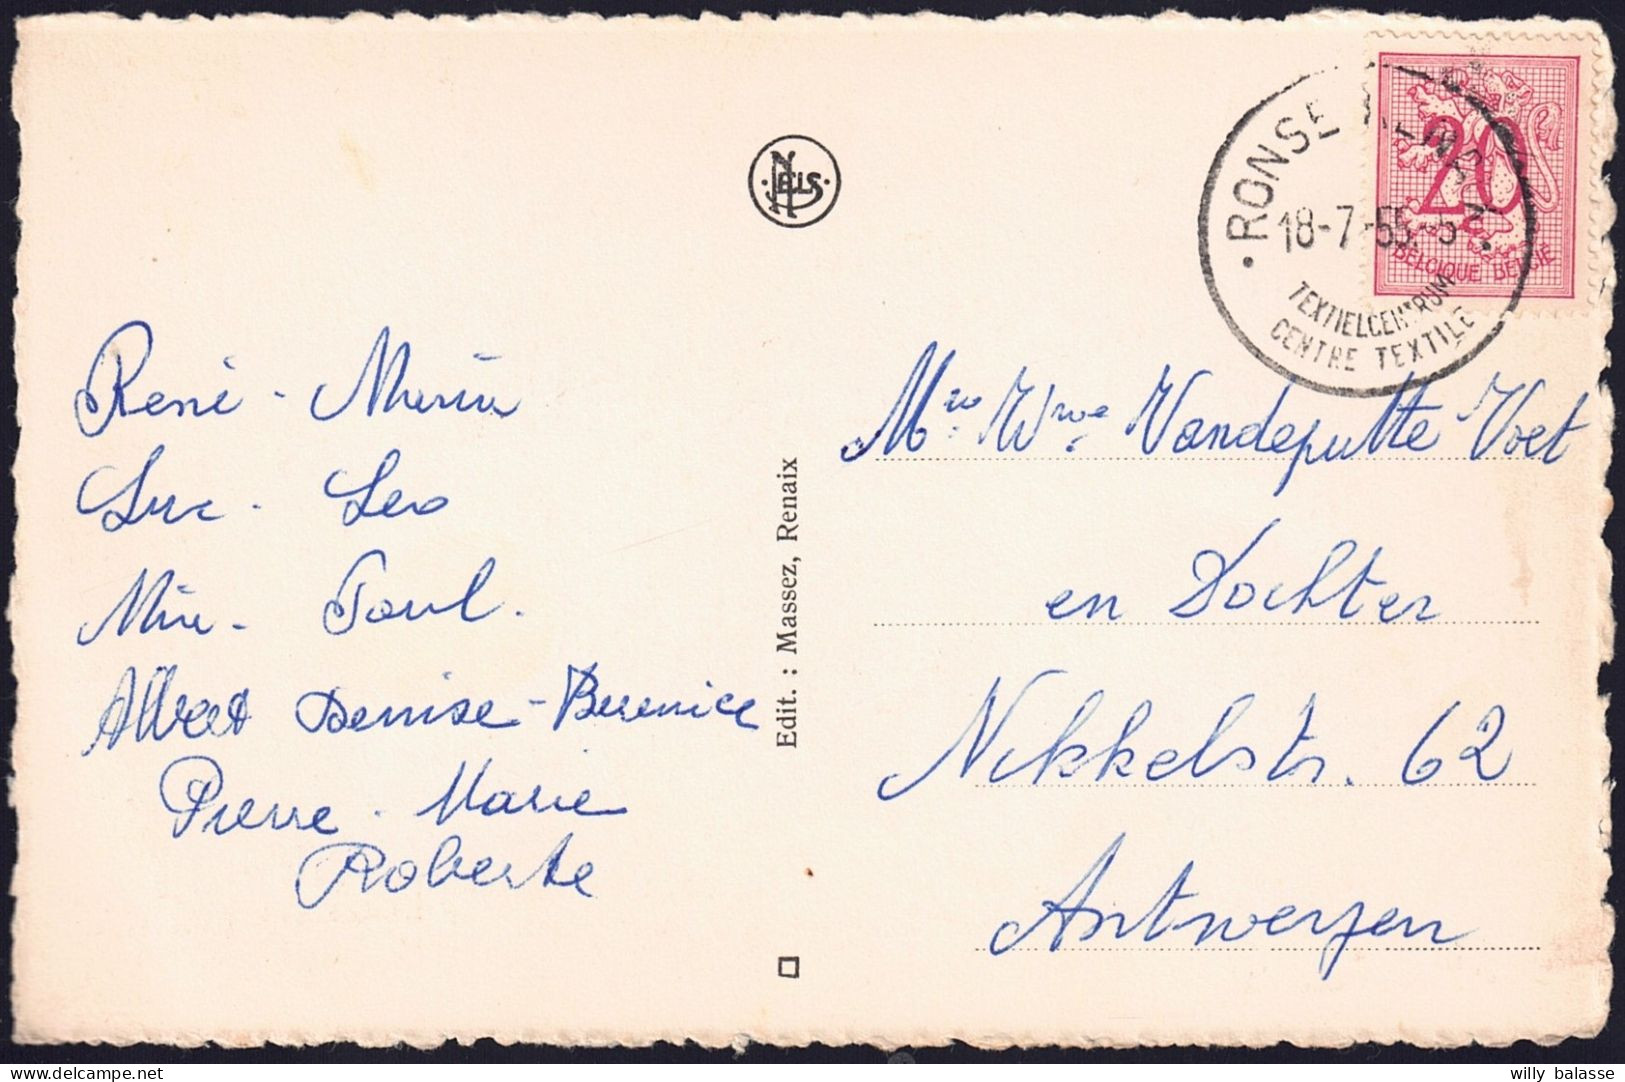 René - Maria
Luc - Leo
Mia - Paul.
Albert Denise - Berenice
Pierre - Marie
Roberte
NELS
Edit. : Massez, Renaix
20
BELGIQUE BELGIË
RONSE
18-7-
TEXTIELCENTRUM
CENTRE TEXTILE
Mw. Wwe Vandeputte Voet
en Dochter
Nikkelstr. 62
Antwerpen
delcampe.net
willy balasse